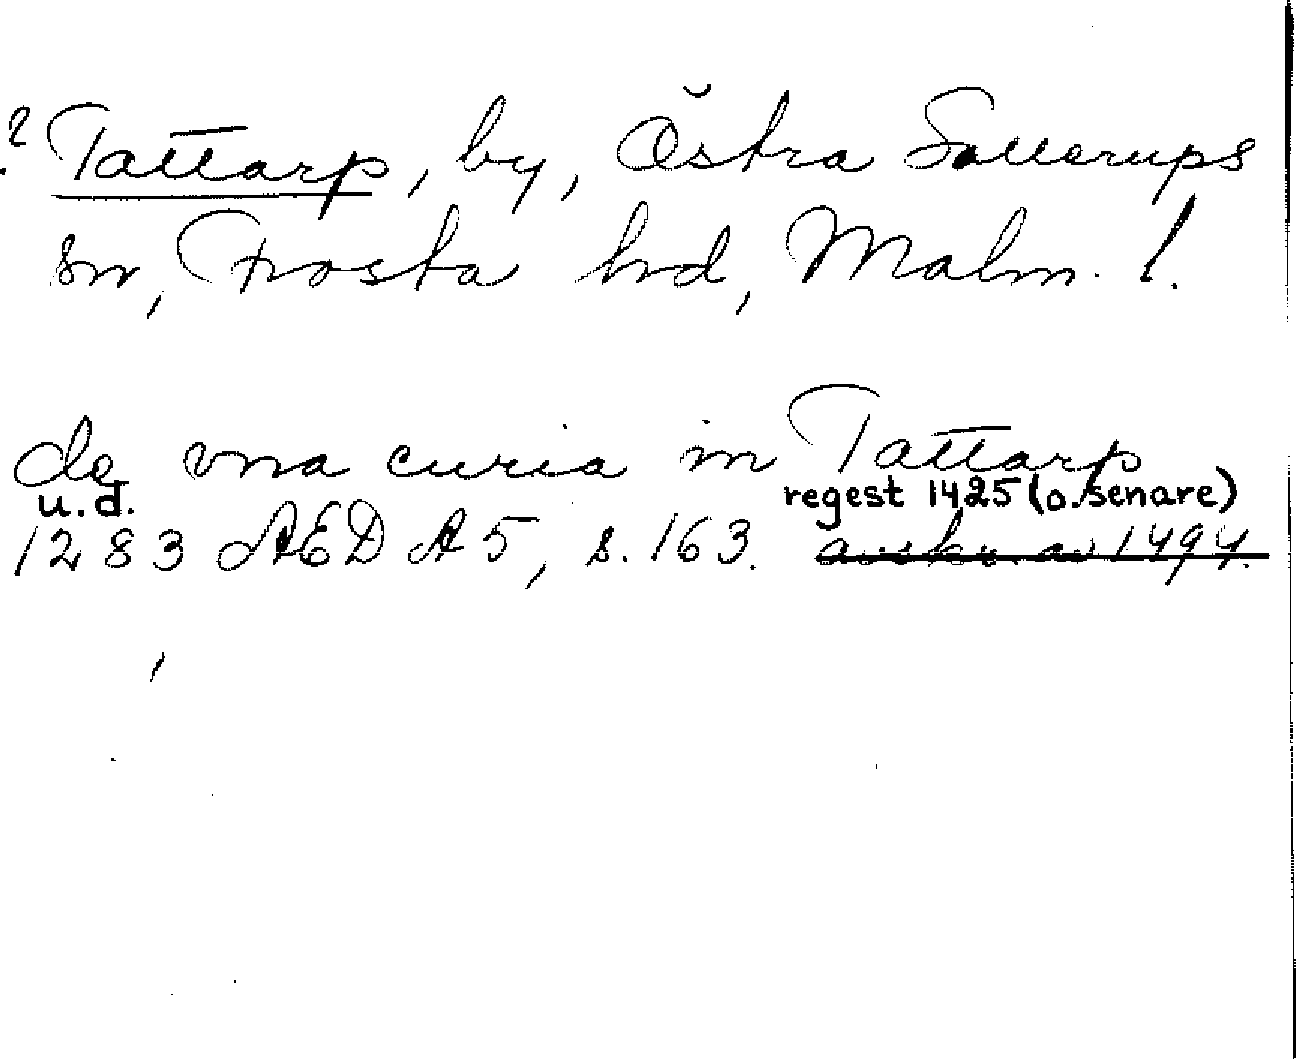 ? Tattarp, by, Östra Sallerups
sn, Frosta hd, Malm. l.
de vna curia in Tattarp
u.d. regest 1425 (o. senare)
1283 AED A5, s. 163. avskr. av 1494.